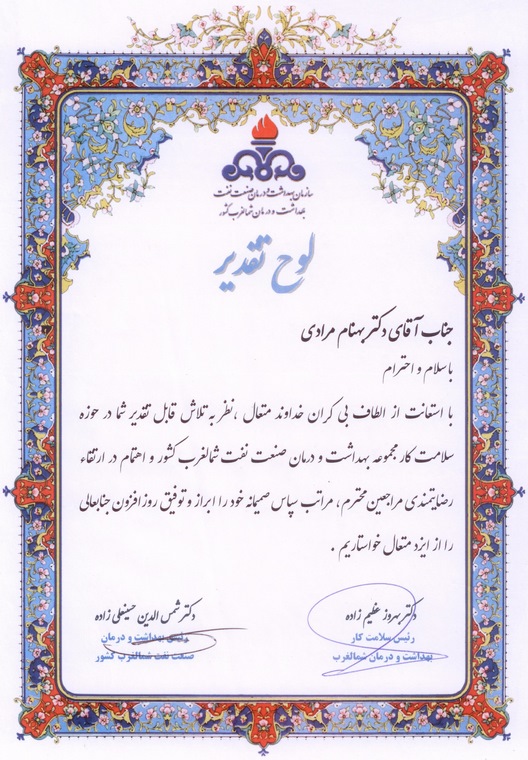 سازمان بهداشت و درمان صنعت نفت
بهداشت و درمان شمالغرب کشور
لوح تقدیر
جناب آقای دکتر بهنام مرادی
با سلام و احترام
با استعانت از الطاف بی کران خداوند متعال ، نظر به تلاش قابل تقدیر شما در حوزه
سلامت کار مجموعه بهداشت و درمان صنعت نفت شمالغرب کشور و اهتمام در ارتقاء
رضایتمندی مراجعین محترم ، مراتب سپاس صمیمانه خود را ابراز و توفیق روز افزون جنابعالی
را از ایزد متعال خواستاریم .
دکتر بهروز عظیم زاده
رئیس سلامت کار
بهداشت و درمان شمالغرب
دکتر شمس الدین حسینعلی زاده
رئیس بهداشت و درمان
صنعت نفت شمالغرب کشور